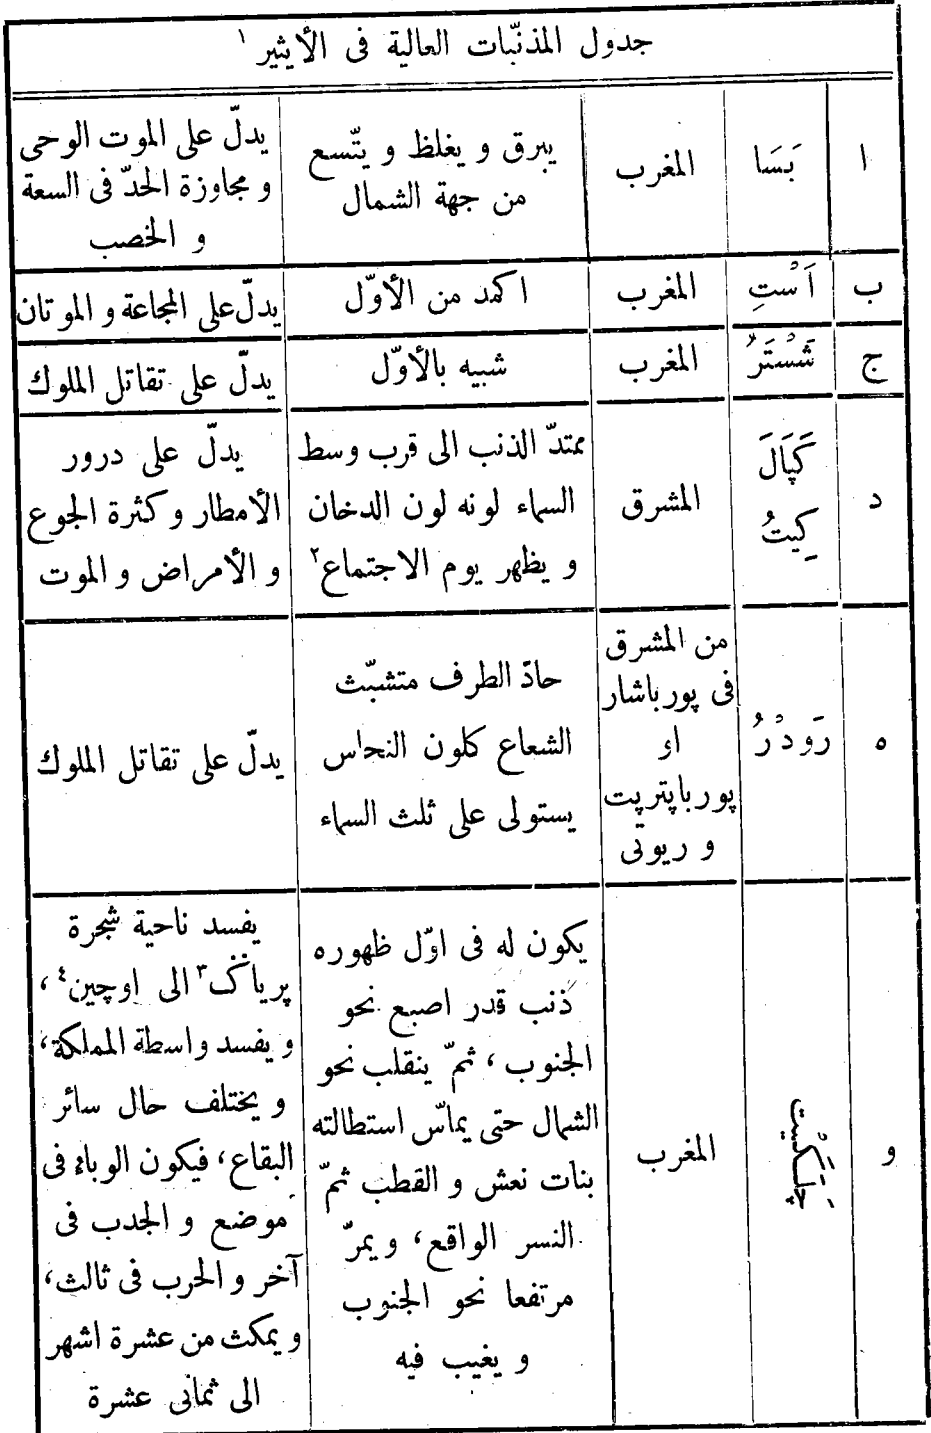 جدول المذنّبات العالية فى الأيثير ١
ا
بَسَا
المغرب
يبرق و يغلظ و يتّسع
من جهة الشمال
يدلّ على الموت الوحى
و مجاوزة الحدّ فى السعة
و الخصب
ب
اَسْتِ
المغرب
اكمد من الأوّل
يدلّ على المجاعة و الموتان
ج
شَسْتَرُ
المغرب
شبيه بالأوّل
يدلّ على تقاتل الملوك
د
كَپَالَ
كِيتُ
المشرق
ممتدّ الذنب الى قرب وسط
السماء لونه لون الدخان
و يظهر يوم الاجتماع ٢
يدلّ على درور
الأمطار و كثرة الجوع
و الأمراض و الموت
ه
رَودْرُ
من المشرق
فى پورباشار
او
پورباپتريت
و ريوتى
حادّ الطرف متشبّث
الشعاع كلون النحاس
يستولى على ثلث السماء
يدلّ على تقاتل الملوك
و
چَلَكيُت
المغرب
يكون له فى اوّل ظهوره
ذنب قدر اصبع نحو
الجنوب، ثمّ ينقلب نحو
الشمال حتى يماسّ استطالته
بنات نعش و القطب ثمّ
النسر الواقع، و يمرّ
مرتفعا نحو الجنوب
و يغيب فيه
يفسد ناحية شجرة
پرياگ ٣ الى اوجين ٤،
و يفسد واسطة المملكة،
و يختلف حال سائر
البقاع، فيكون الوباء فى
موضع و الجدب فى
آخر و الحرب فى ثالث،
و يمكث من عشرة اشهر
الى ثمانى عشرة